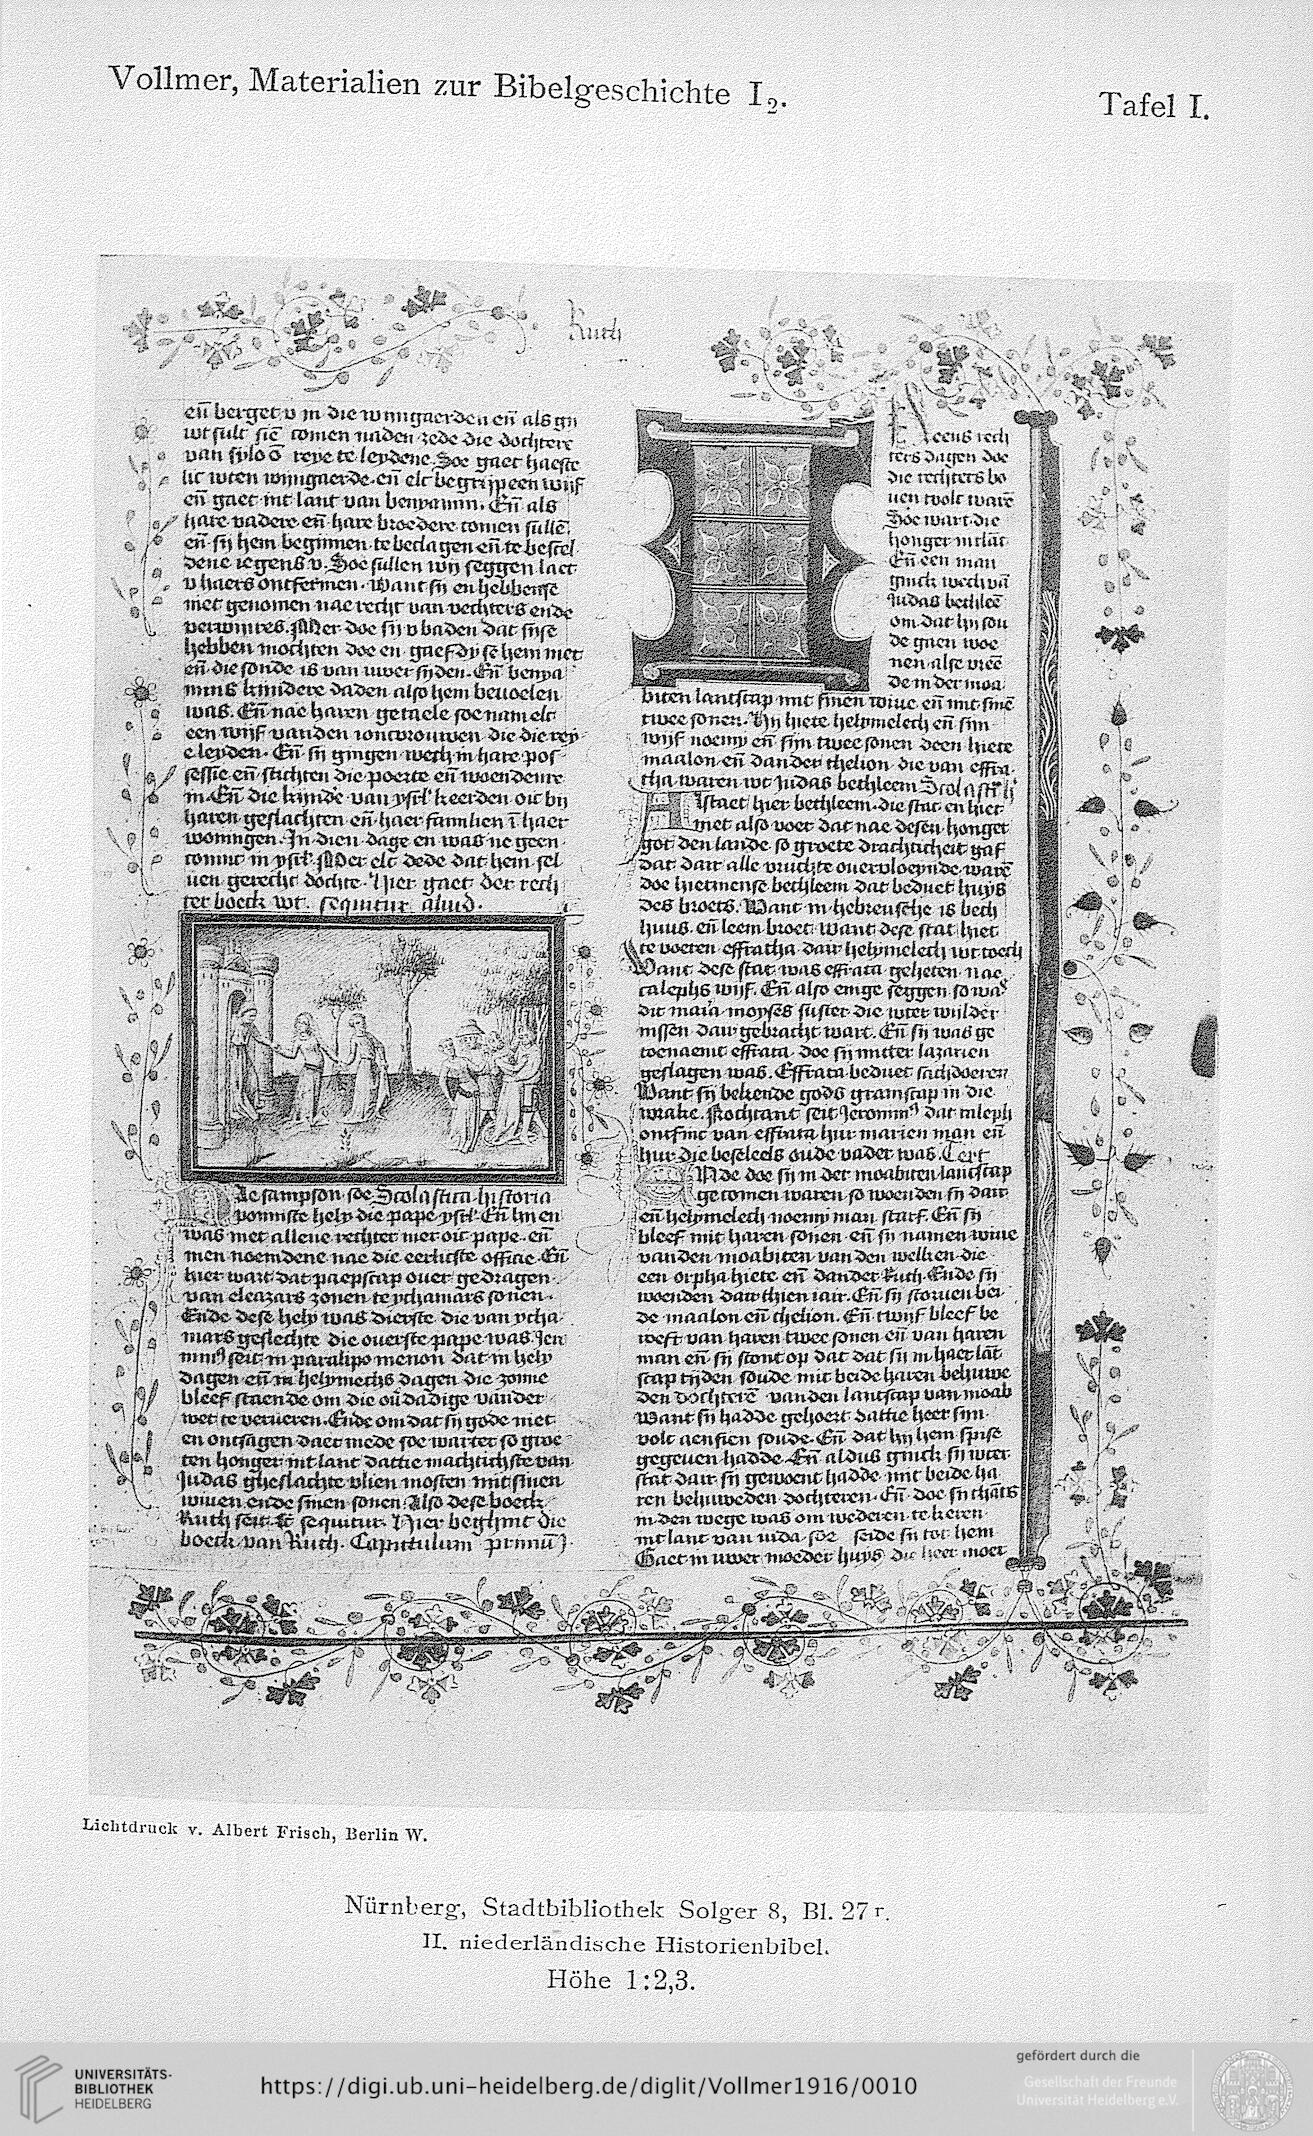 Vollmer, Materialien zur Bibelgeschichte I₂.
Tafel I.
Ruth
en̄ berget v in die wijngaerden en̄ als gij
wt sult sien̄ comen naden zede die dochtere
van sylo ō reye te leydene. Soe gaet haeste
lic wten wijngaerde. en̄ elc begrijp een wijf
en̄ gaet int lant van benyamin. En̄ als
hare vadere en̄ hare broedere comen sullē.
en̄ sij hem beginnen te beclagen en̄ te bescel
dene iegens v. Soe sullen wij seggen laet
v haers ontfermen. Want sij en hebbense
niet genomen nae recht van vechters ende
verwinres. Mer doe sij v baden dat sijse
hebben mochten doe en gaefdy se hem niet
en̄ die sonde is van uwer sijden. En̄ benya
mins kindere daden also hem beuolen
was. En̄ nae haren getaele soe nam elc
een wijf vanden ioncvrouwen die die rey
e leyden. En̄ sij gingen wech in hare pos
sessie en̄ stichten die poerte en̄ woendenre
in. En̄ die kijnde van ysrl' keerden oic bij
haren geslachten en̄ haer familien ī haer
woningen. In dien dage en was ne geen
coninc in ysrl'. Mer elc dede dat hem sel
uen gerecht dochte. Hier gaet der rech
ter boeck wt. sequitur aliud.
Ae sampson soe Scolastica historia
vonniste hely die pape ysrl'. En̄ hij en
was niet alleue rechter mer oic pape. en̄
men noemdene nae die eerlicste officie. En̄
hier wart dat paepscap ouer gedragen
van eleazars zonen te ychamars sonen.
Ende dese hely was dierste die van ycha
mars geslechte die ouerste pape was. Jero
nimꝰ seit in paralipomenon dat in hely
dagen en̄ in helymechs dagen die zonne
bleef staende om die ou̅dadige vander
wet te verueren. Ende om dat sij gode niet
en ontsagen daer mede soe wartet so groe
ten honger int lant dattie machtichste van
Judas gheslachte vlien mosten mit sinen
wiuen ende sinen sonen. Also dese boeck
Ruth seit. Et sequitur. Hier beghint die
boeck van Ruth. Capittulum primū.
eens rech
ters dagen doe
die rechters bo
uen tvolc warē
Soe wart die
honger int lāt
En̄ een man
ginck wech vā
Judas bethleē
om dat hij sou
de gaen woe
nen alse vree
de in der moa
biten lantscap mit sinen wiue en̄ mit sinē
twee sonen. Hij hiete helymelech en̄ sijn
wijf noemy en̄ sijn twee sonen deen hiete
maalon en̄ dander chelion die van effra
tha waren wt Judas bethleem Scolastih
Jstaet hier bethleem. die stat en hiet
niet also voer dat nae desen honger
got den lande so groete drachticheit gaf
dat dair alle vruchte oueruloeynde warē
doe hietmense bethleem dat beduet huys
des broets. Want in hebreusche is beth
huus. en̄ leem broet. Want dese stat hiet
te voeren effratha dair helymelech wt toech
Want dese stat was effrata geheten nae
calephs wijf. En̄ also enige seggen so was
dit maria moyses suster die wter wilder
nissen dair gebracht wart. En̄ sij was ge
toenaemt effrata doe sij mitter lazarien
geslagen was. Effrata beduet sachdoeren
Want sij bekende gods gramscap in die
wrake. Nochtant seit Jeronimꝰ dat caleph
ontfinc van effrata hur marien man en̄
hur die beseleels oude vader was. Text
Nde doe sij in der moabiten lantscap
gecomen waren so woenden sij dair
en̄ helymelech noemy man starf. En̄ sij
bleef mit haren sonen en̄ sij namen wiue
vanden moabiten van den welken die
een orpha hiete en̄ dander Ruth. Ende sij
woenden dair thien iair. En̄ sij storuen bei
de maalon en̄ chelion. En̄ twijf bleef be
roeft van haren twee sonen en̄ van haren
man en̄ sij stont op dat dat sij in haer lāt
scap tijden soude mit beide haren behuwe
den dochterē vanden lantscap van moab
Want sij hadde gehoert dattie heer sijn
volc aensien soude. En̄ dat hij hem spise
gegeuen hadde. En̄ aldus ginck sij wter
stat dair sij gewoent hadde mit beide ha
ren behuweden dochteren. En̄ doe sij thās
in den wege was om wederen te keren
int lant van iuda soe seide sij tot hem
Gaet in uwer moeder huys die heer moet
Lichtdruck v. Albert Frisch, Berlin W.
Nürnberg, Stadtbibliothek Solger 8, Bl. 27 r.
II. niederländische Historienbibel.
Höhe 1:2,3.
UNIVERSITÄTS-
BIBLIOTHEK
HEIDELBERG
https://digi.ub.uni-heidelberg.de/diglit/Vollmer1916/0010
gefördert durch die
Gesellschaft der Freunde
Universität Heidelberg e.V.